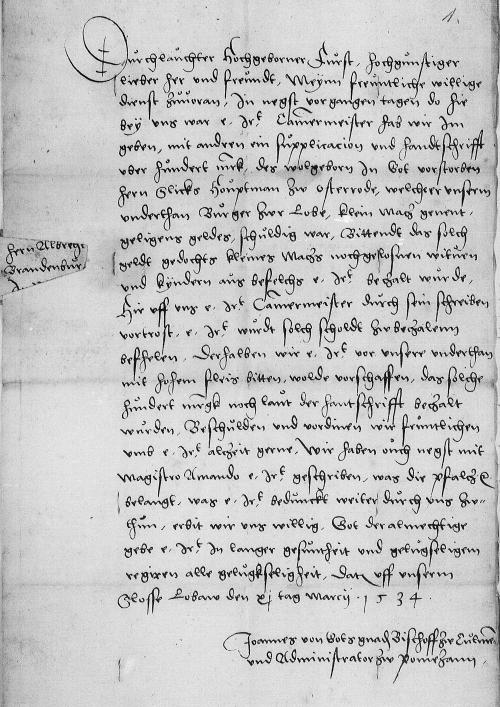 1.
Durchlauchter Hochgeborner Furst, hochgunstiger
lieber her und freundt, Meynn freuntliche willige
dienst zuuoran, In negst vorgangen tagen do hie
bey uns war e. Irt Camermeister hab wir Im
geben, mit andren ein supplicacion und handtschrifft
uber hundert mrk, des wolgeborn In Got vorstorben
hern Glicks Houptman zw osterrode, welcher unserm
underthan Burger zwr Lobe, klein Matz genent,
geligens geldes, schuldig war, Bittendt das solch
geldt gedochts kleines Matzs nochgelosnen witwen
und kyndern aus befelchs e. Irt bezalt wurde,
Hie uff uns e. Irt Camermeister durch sein schreiben
vortrost, e. Irt wurdt solch scholdt zw bezalenn
befhelen, Derhalben wir e. Irt vor unsere underthan
mit hohem fleis bitten, wolde vorschaffen, das solche
hundert margk noch laut der hantschrifft bezalt
wurden, Beschulden und vordinen wir fruntlichen
umb e. Irt alzeit gerne, Wir haben ouch negst mit
Magistro Amando e. Irt geschriben, was die pfaltz
belangt, was e. Irt bedunckt weiter durch uns zw
thun, erbit wir uns willig, Got der almechtige
gebe e. Irt In langer gesuntheit und gelugseligem
regiren alle gelugkseligheit, Dat uff unserm
Slosse Lobaw den xj tag Marcij 1534.
Joannes von Gots gnad Bischoff zw Culmen
und Administrator zw Pomezann
hern Albreg
Brandenbur